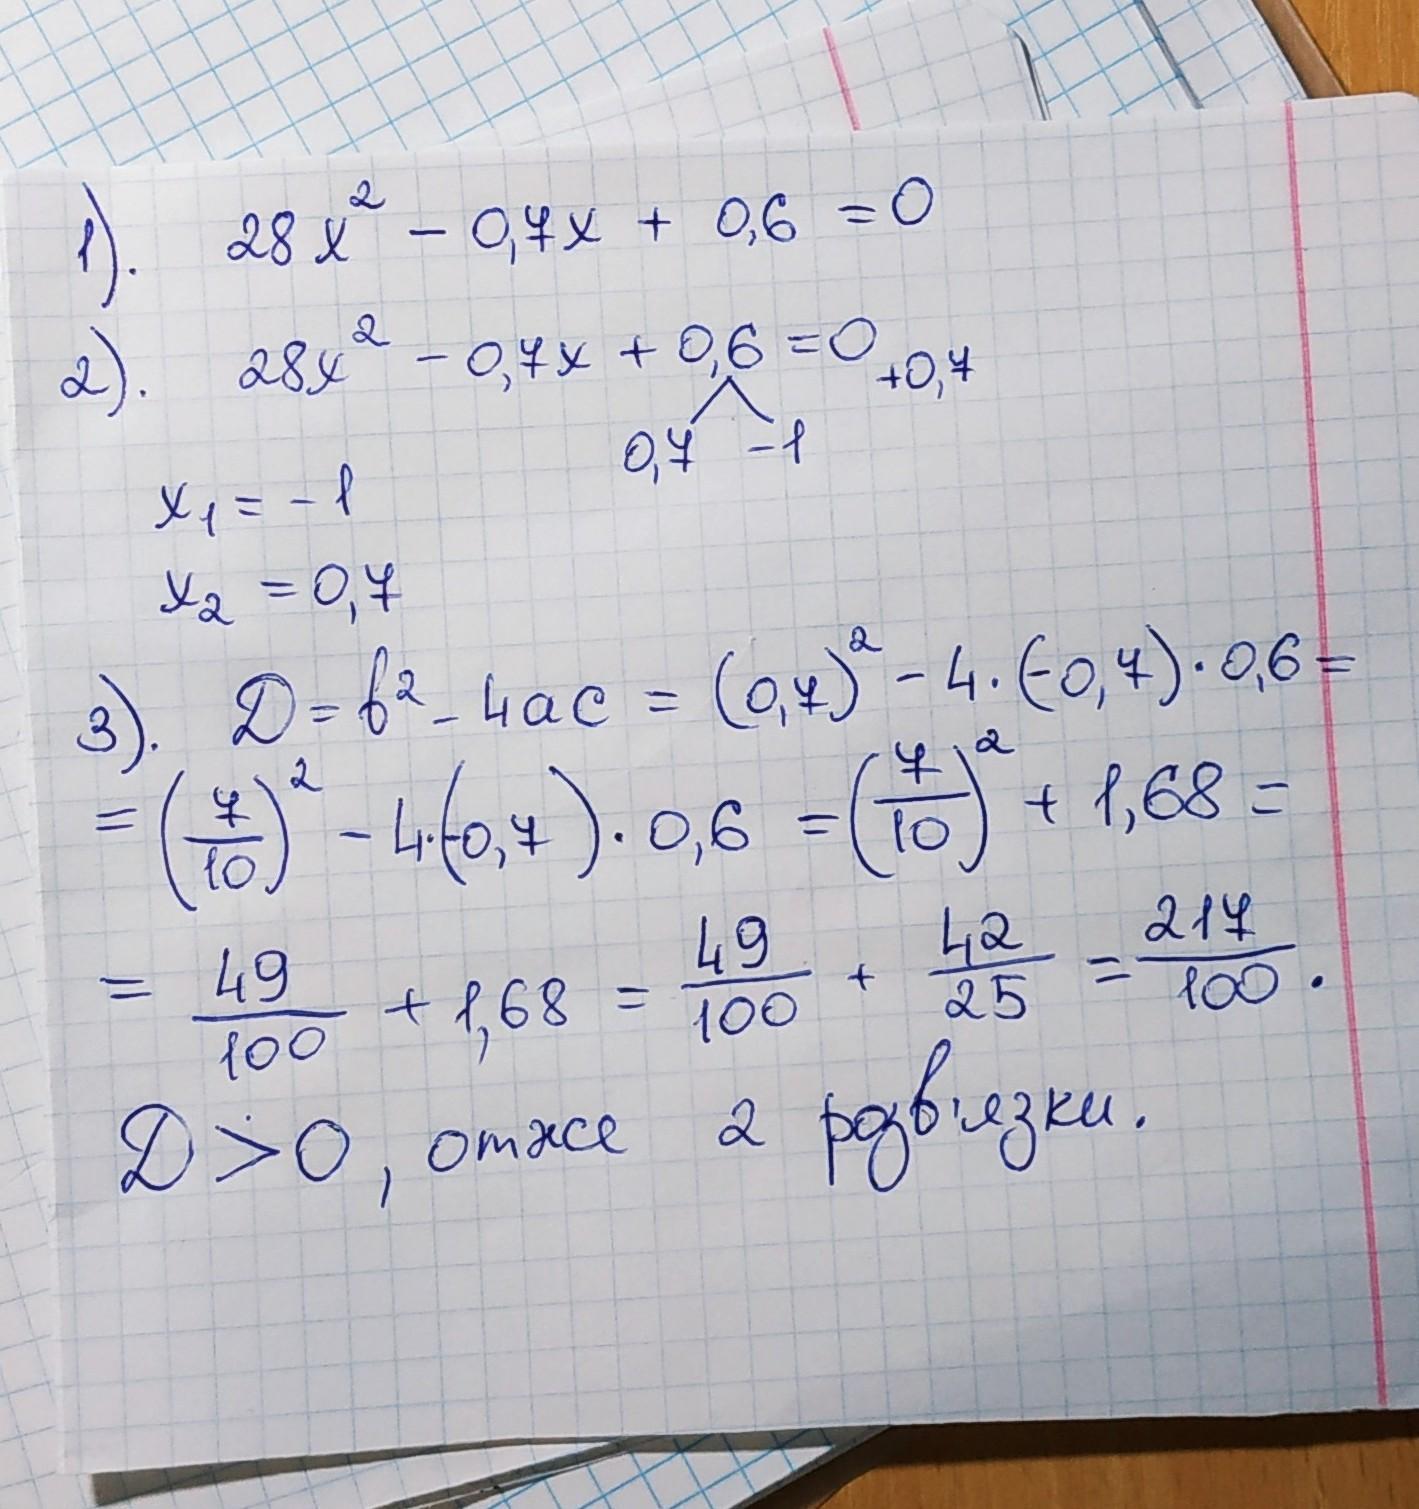 1). 28x² - 0,7x + 0,6 = 0
2). 28x² - 0,7x + 0,6 = 0 +0,7
0,7 -1
x₁ = -1
x₂ = 0,7
3). D = b² - 4ac = (0,7)² - 4·(-0,7)·0,6 =
= (7/10)² - 4·(-0,7)·0,6 = (7/10)² + 1,68 =
= 49/100 + 1,68 = 49/100 + 42/25 = 217/100.
D > 0, отже 2 розв'язки.